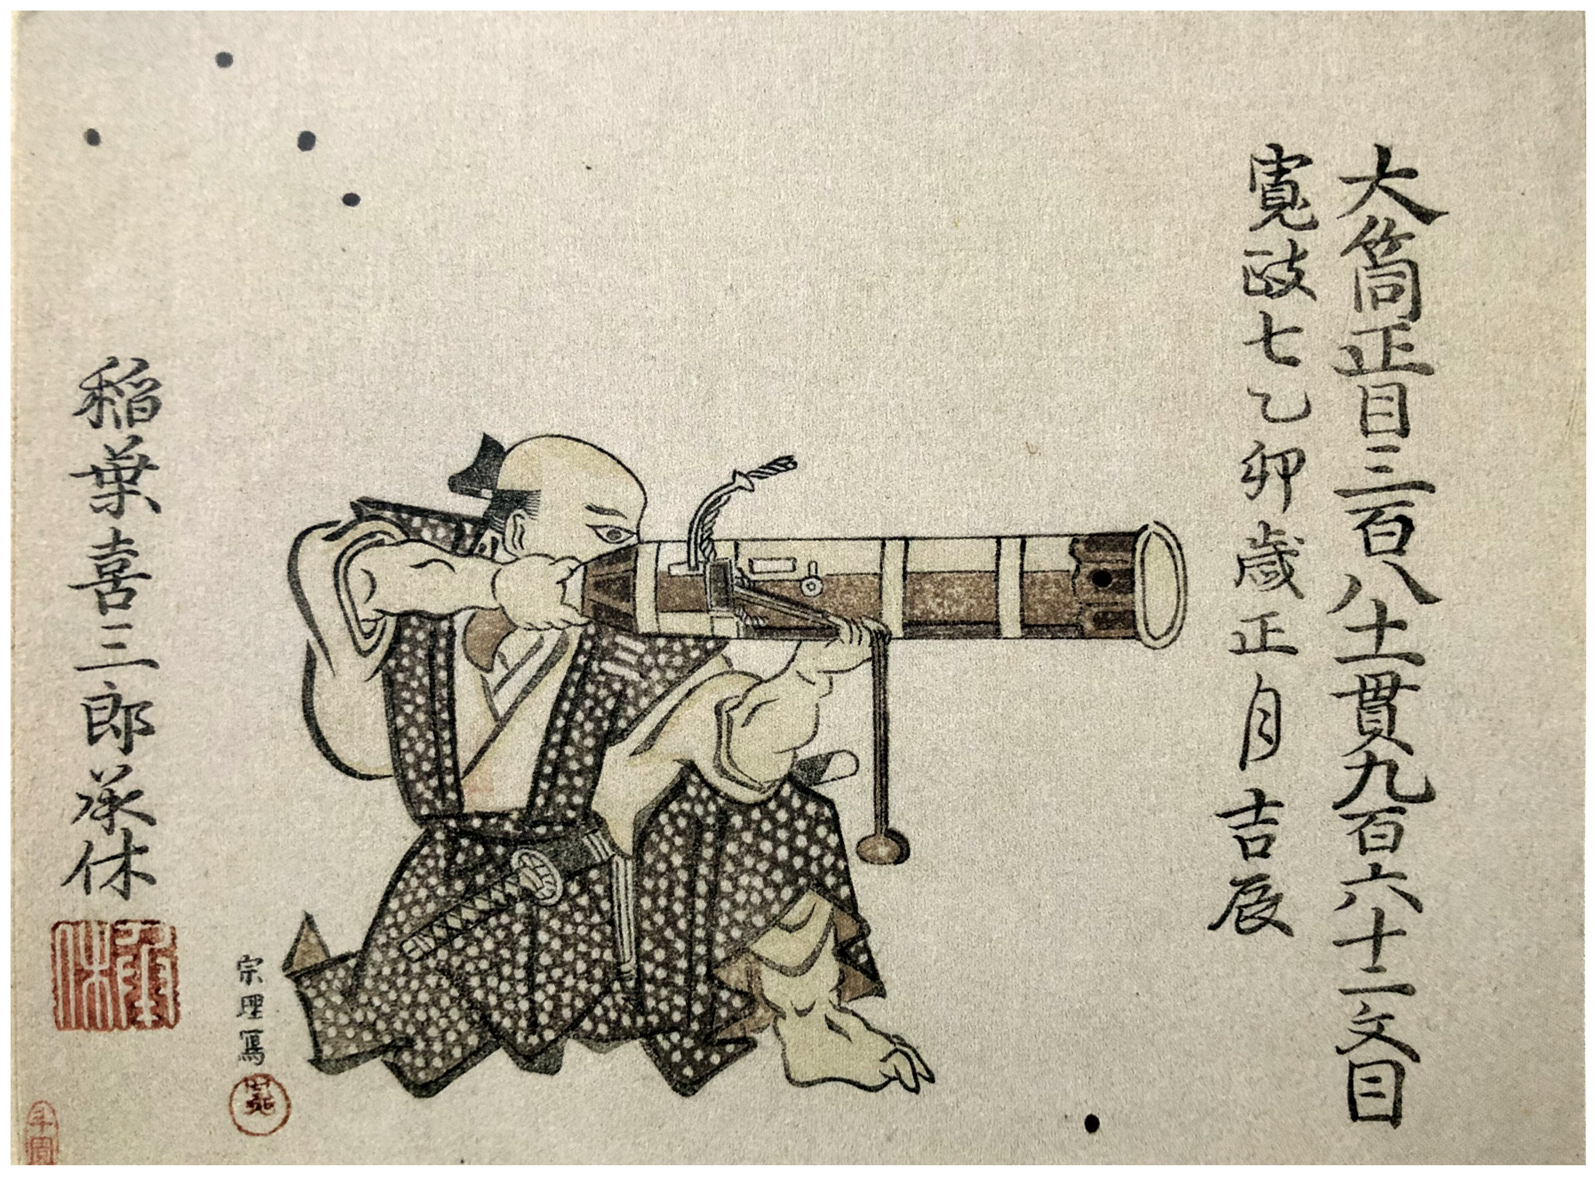 大筒正目三百八十一貫九百六十二文目
寛政七乙卯歳正月吉辰
稲葉喜三郎承休
宗理冩